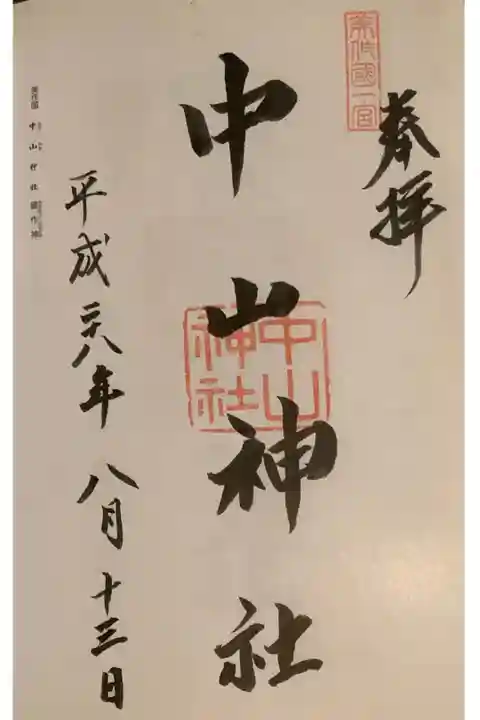 奉拝
美作國一宮
中山神社
中山
神社
平成二十八年 八月 十三日
美作國 中山神社 鏡作神